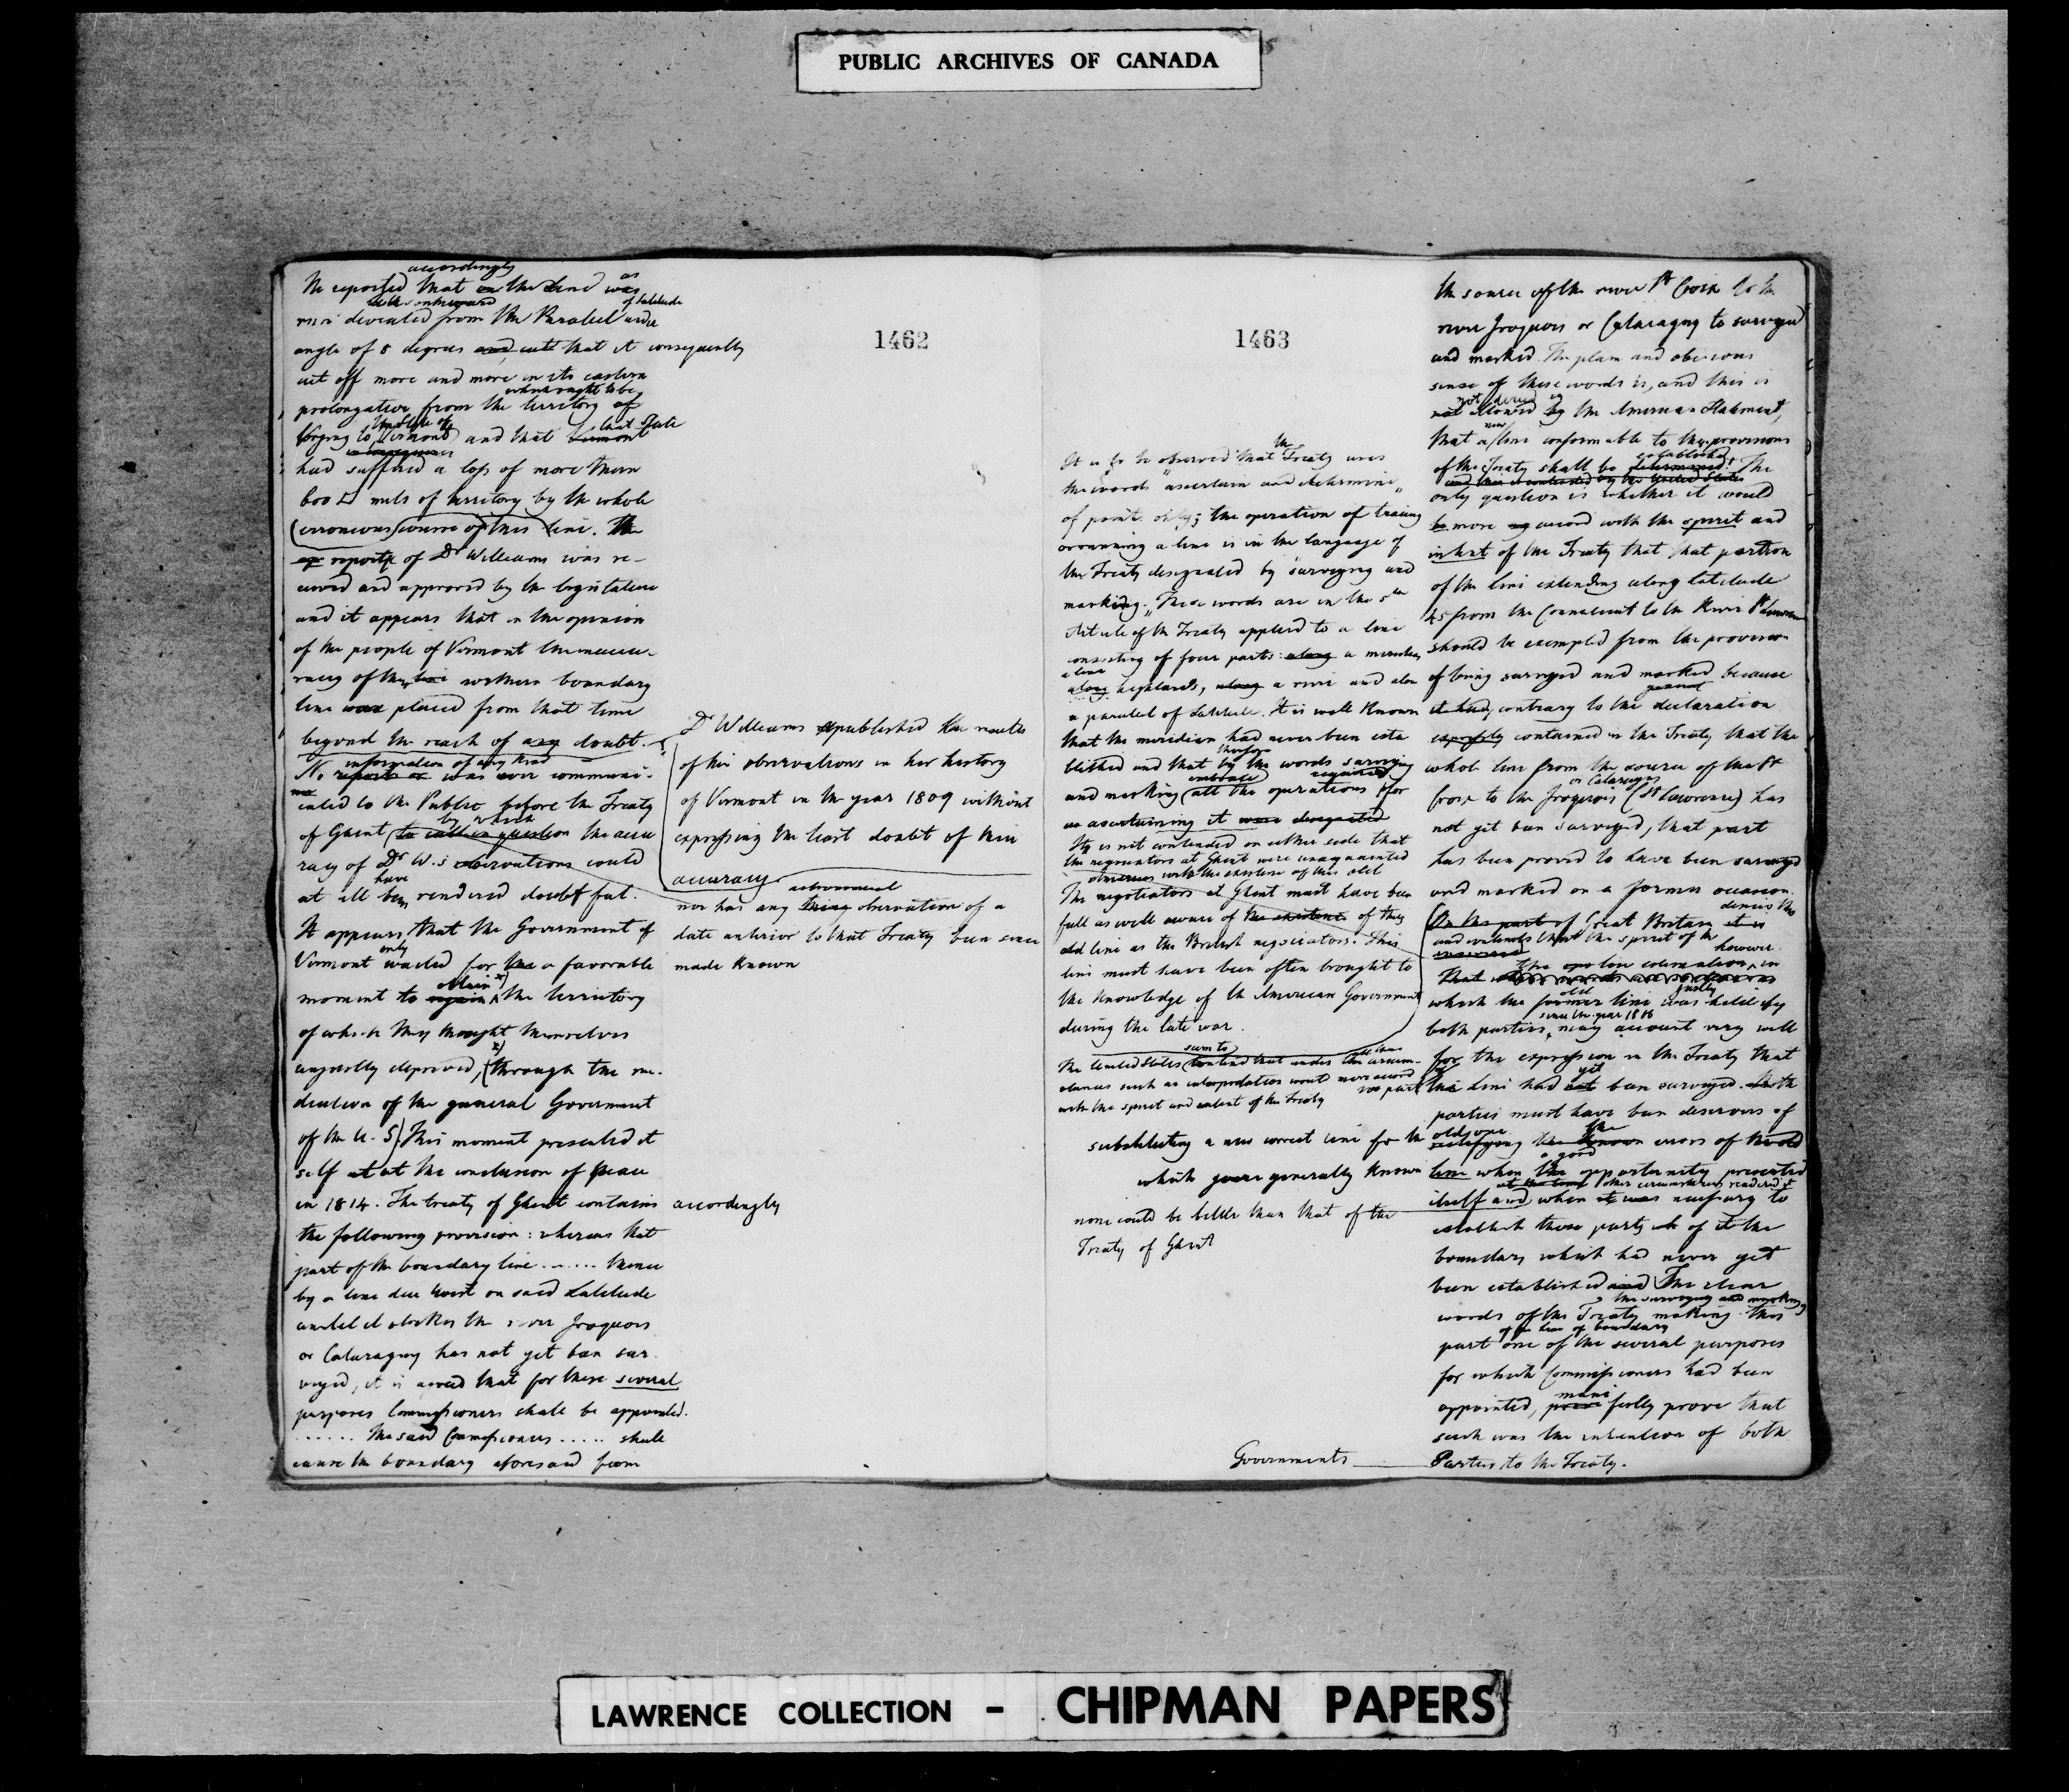 PUBLIC ARCHIVES OF CANADA
1462
accordingly
He reported that on the Line was as
in its onkward
river deviated from the Paralel under of Latitude
angle of 8 degrees and cuts that it consequently
cut off more and more in its eastern
what ought to be
prolongation from the territory of
the State of
longing to Vermont and that Vermont that State
in consequence
had suffered a loss of more than
600 □ mils of territory by the whole
(erroneous) course of this line. The
reports of Dr Williams was re-
ceived and approved by the legislature
and it appears that in the opinion
of the people of Vermont the inaccu-
racy of the line northern boundary
line was placed from that time
beyond the reach of any doubt.
information of any kind
No report or was ever communi-
cated to the Public before the Treaty
by which
of Ghent (to call in question the accu
racy of Dr W.s observations could
have
at all been rendered doubtful.
It appears that the Government of
only
Vermont waited for the a favorable
obtain x)
moment to regain the territory
of which they thought themselves
x)
unjustly deprived, (through the me-
diation of the general Government
of the U. S) This moment presented it
self at at the conclusion of peace
in 1814. The treaty of Ghent contains accordingly
the following provision: whereas that
part of the boundary line ...... thence
by a line due West on said Latitude
until it strikes the river Iroquois
or Cataraguy has not yet been sur.
veyed, it is agreed that for these several
purposes Commissioners shall be appointed.
...... The said Commissioners ..... shall
cause the boundary aforesaid from
Dr Williams published the results
of his observations in his history
of Vermont in the year 1809 without
expressing the least doubt of their
accuracy
astronomical
nor has any thing observation of a
date anterior to that Treaty been since
made known
1463
the
It is to be observed that Treaty uses
the words "ascertain and determine"
of points only; the operation of tracing
or running a line is in the language of
the Treaty designated by "surveying and
marking." These words are in the 5th
Article of the Treaty applied to a line
consisting of four parts: along a meridian,
a line
along highlands, along a river and along
a paralel of Latitude. It is well known
that the meridian had never been esta
therefore
blished and that by the words surveying
embrace required
and marking (all the operations for
as ascertaining it were designated
It is not contended on either side that
the negociators at Ghent were unacquainted
with the existence of this old
The negotiators at Ghent must have been
full as well aware of the existence of this
old line as the British negociators. This
line must have been often brought to
the knowledge of the American Government
during the late war.
seem to
The United States contend that under the circum-
stances such an interpretation would more accord
with the spirit and intent of the Treaty
substituting a new correct line for the old one
which were generally known
none could be better than that of the
Treaty of Ghent
Governments
the source of the river St Croix to the
river Iroquois or Cataraguy to surveyed
and marked. The plain and obvious
sense of these words is, and this is
not denied in
not allowed by the American Statement,
new
that a line conformable to the provisions
established
of the Treaty shall be determined. The
and this is contended by the United States
only question is whether it would
be more accord with the spirit and
intent of the Treaty that that portion
of the line extending along Latitude
45 from the Connecticut to the River St Lawrence
should be exempted from the provision
of being surveyed and marked because
general
it had, contrary to the declaration
expressly contained in the Treaty that the
whole line from the source of the St
or Cataraguy
Croix to the Iroquois (St Lawrence) has
not yet been surveyed, that part
has been proved to have been surveyed
and marked on a former occasion.
denies this
On the part of Great Britain it is
and contends that the spirit of the
however
The low estimation, in
old justly
which the former line was held by
since the year 1806
both parties, may account very well
for the expression in the Treaty that
yet
this Line had not been surveyed. Both
parties must have been desirous of
the
rectifying the known errors of the old
a good
line when the opportunity presented
at the time other circumstances rendered it
itself and when it was necessary to
establish those parts of it the
boundary which had never yet
been established and The clear
the surveying and marking
words of the Treaty making this
of the line of boundary
part one of the several purposes
for which Commissioners had been
mani
appointed, festly prove that
such was the intention of both
Parties to the Treaty.
LAWRENCE COLLECTION - CHIPMAN PAPERS